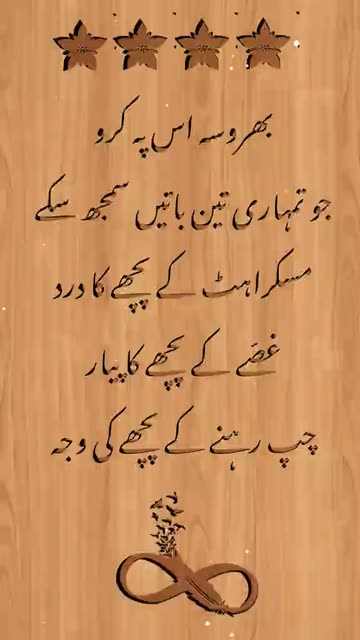 بھروسہ اس پہ کرو
جو تمہاری تین باتیں سمجھ سکے
مسکراہٹ کے پچھے کا درد
غصّے کے پچھے کا پیار
چپ رہنے کے پچھے کی وجہ